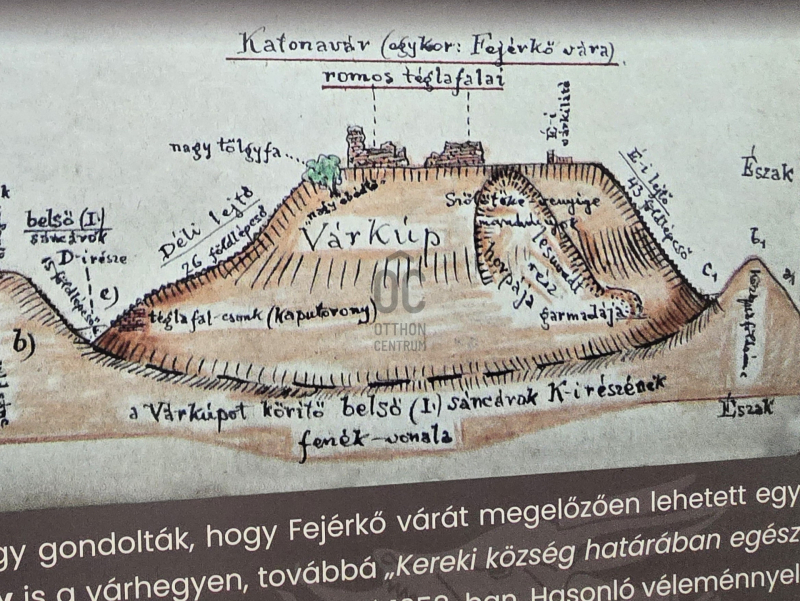 Katonavár (egykor: Fejérkő vára)
romos téglafalai
nagy tölgyfa...
É-i
várkilátó
Észak
É-i lejtő
43 földlépcső
belső (I.)
sáncárok
D-i része
15 földlépcsős
Déli lejtő
26 földlépcső
Várkúp
horpája
garmadája
e)
c₁
b₁
b)
téglafal-csonk (kaputorony)
OC
OTTHON
CENTRUM
Észak
a Várkúpot körítő belső (I.) sáncárok K-i részének
fenék-vonala
gy gondolták, hogy Fejérkő várát megelőzően lehetett egy
is a várhegyen, továbbá „Kereki község határában egész
ban. Hasonló véleménnyel